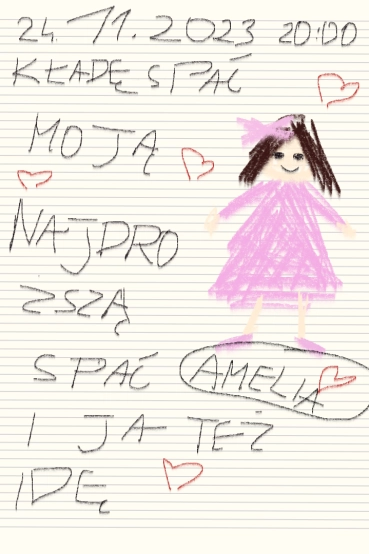 24.11.2023 20:00
KŁADĘ SPAĆ
MOJĄ
NAJDRO
ZSZĄ
SPAĆ AMELIA
I JA TEŻ
IDĘ